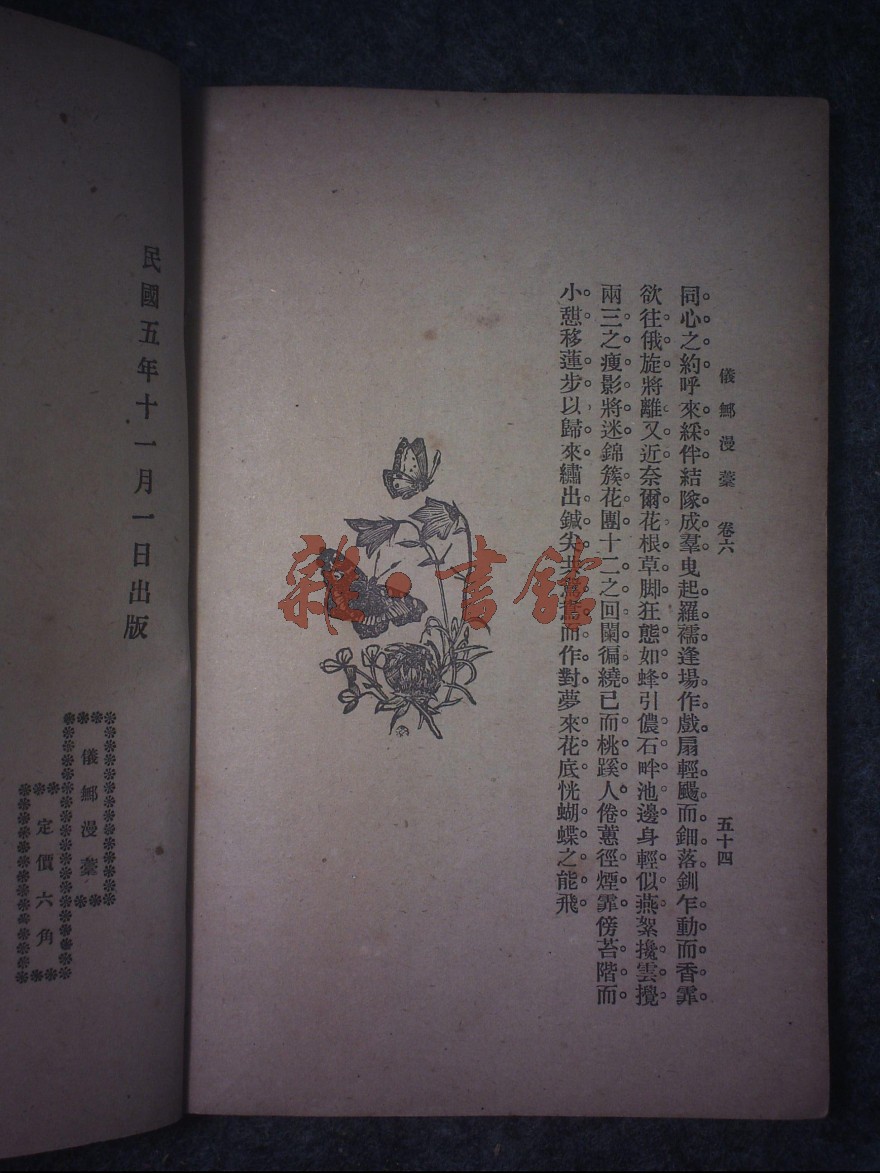 儀鄦漫藳 卷六 五十四
同心之約呼來綵伴結隊成羣曳起羅襦逢場作戲扇輕颺而鈿落釧乍動而香霏
欲往俄旋將離又近奈爾花根草脚狂態如蜂引儂石畔池邊身輕似燕絮攙雲攪
兩三之瘦影將迷錦簇花團十二之回闌徧繞已而桃蹊人倦蕙徑煙霏傍苔階而
小憇移蓮步以歸來繡出鍼尖共鴛鴦而作對夢來花底恍蝴蝶之能飛
雜·書館
民國五年十一月一日出版
儀鄦漫藳
定價六角